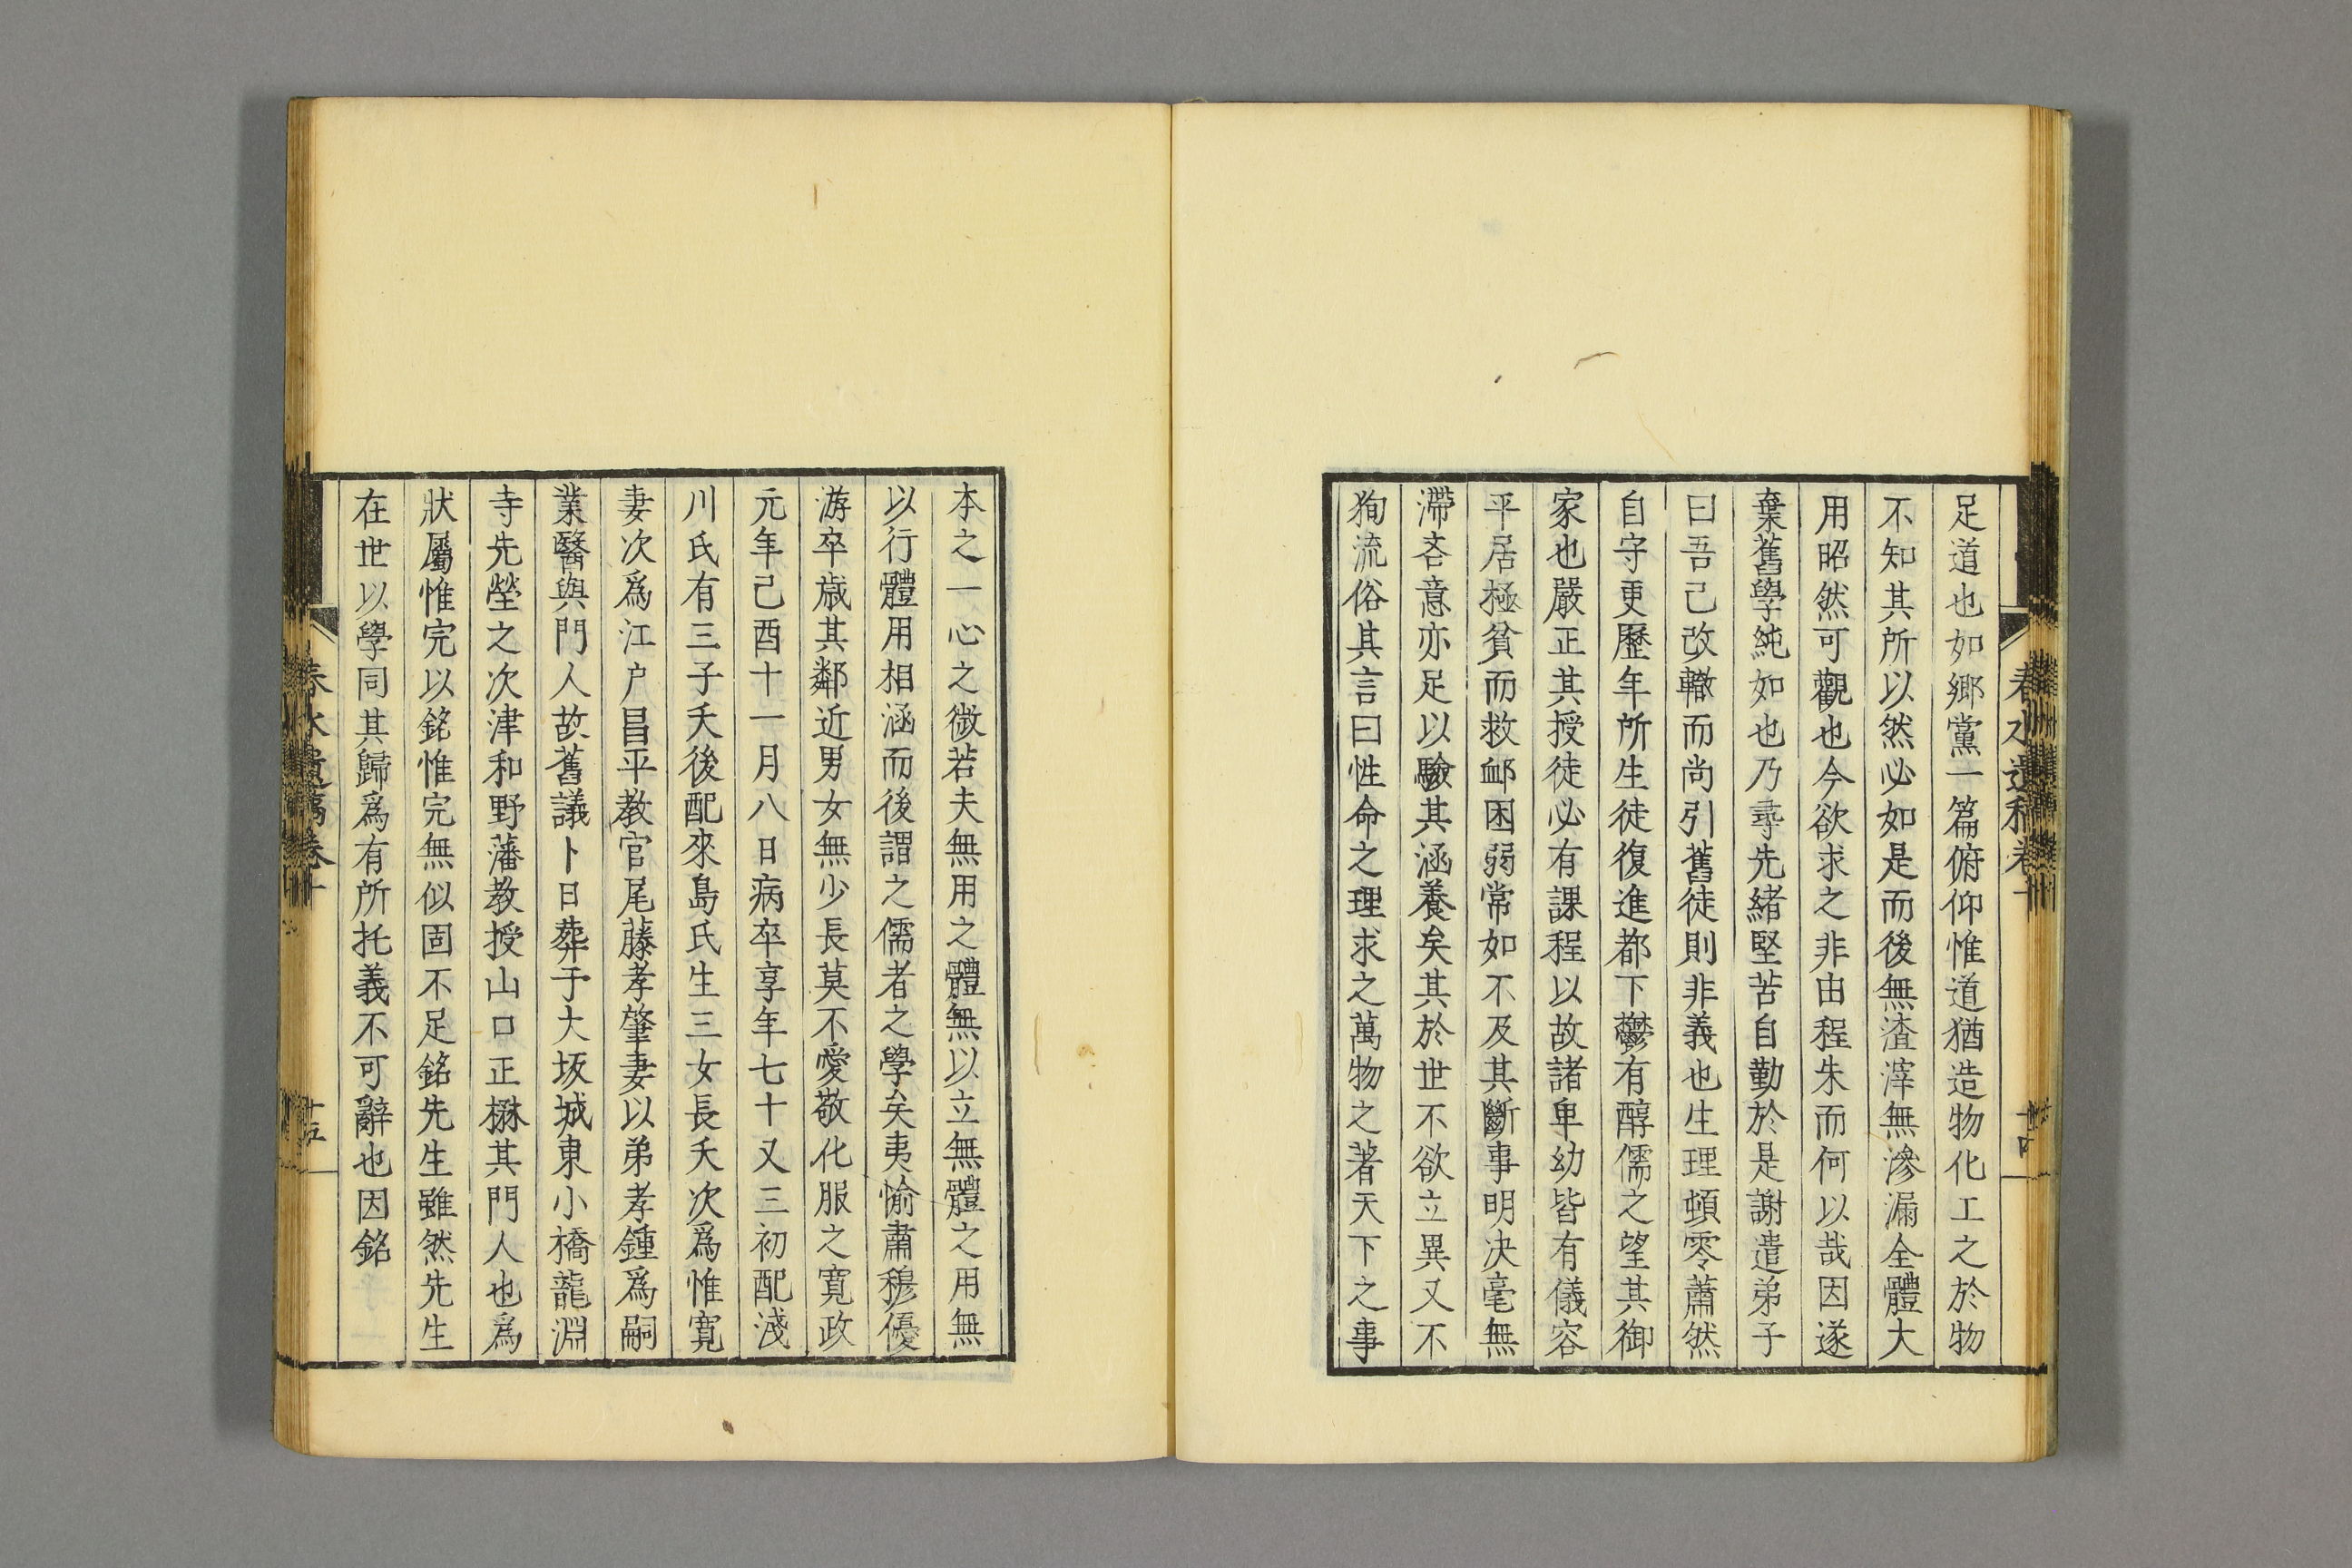 足道也如鄉黨一篇俯仰惟道猶造物化工之於物
不知其所以然必如是而後無渣滓無滲漏全體大
用昭然可觀也今欲求之非由程朱而何以哉因遂
棄舊學純如也乃尋先緒堅苦自勤於是謝遣弟子
曰吾己改轍而尚引舊徒則非義也生理頓零蕭然
自守更歷年所生徒復進都下鬱有醇儒之望其御
家也嚴正其授徒必有課程以故諸卑幼皆有儀容
平居極貧而救衈困弱常如不及其斷事明决毫無
滯吝意亦足以驗其涵養矣其於世不欲立異又不
狥流俗其言曰性命之理求之萬物之著天下之事
春水遺稿卷十
十四
本之一心之微若夫無用之體無以立無體之用無
以行體用相涵而後謂之儒者之學矣夷愉肅穆優
游卒歳其鄰近男女無少長莫不愛敬化服之寬政
元年己酉十一月八日病卒享年七十又三初配淺
川氏有三子夭後配來島氏生三女長夭次爲惟寬
妻次爲江戶昌平教官尾藤孝肇妻以弟孝鍾爲嗣
業醫與門人故舊議卜日葬于大坂城東小橋龍淵
寺先塋之次津和野藩教授山口正楙其門人也爲
狀屬惟完以銘惟完無似固不足銘先生雖然先生
在世以學同其歸爲有所托義不可辭也因銘
春水遺稿卷十
十五